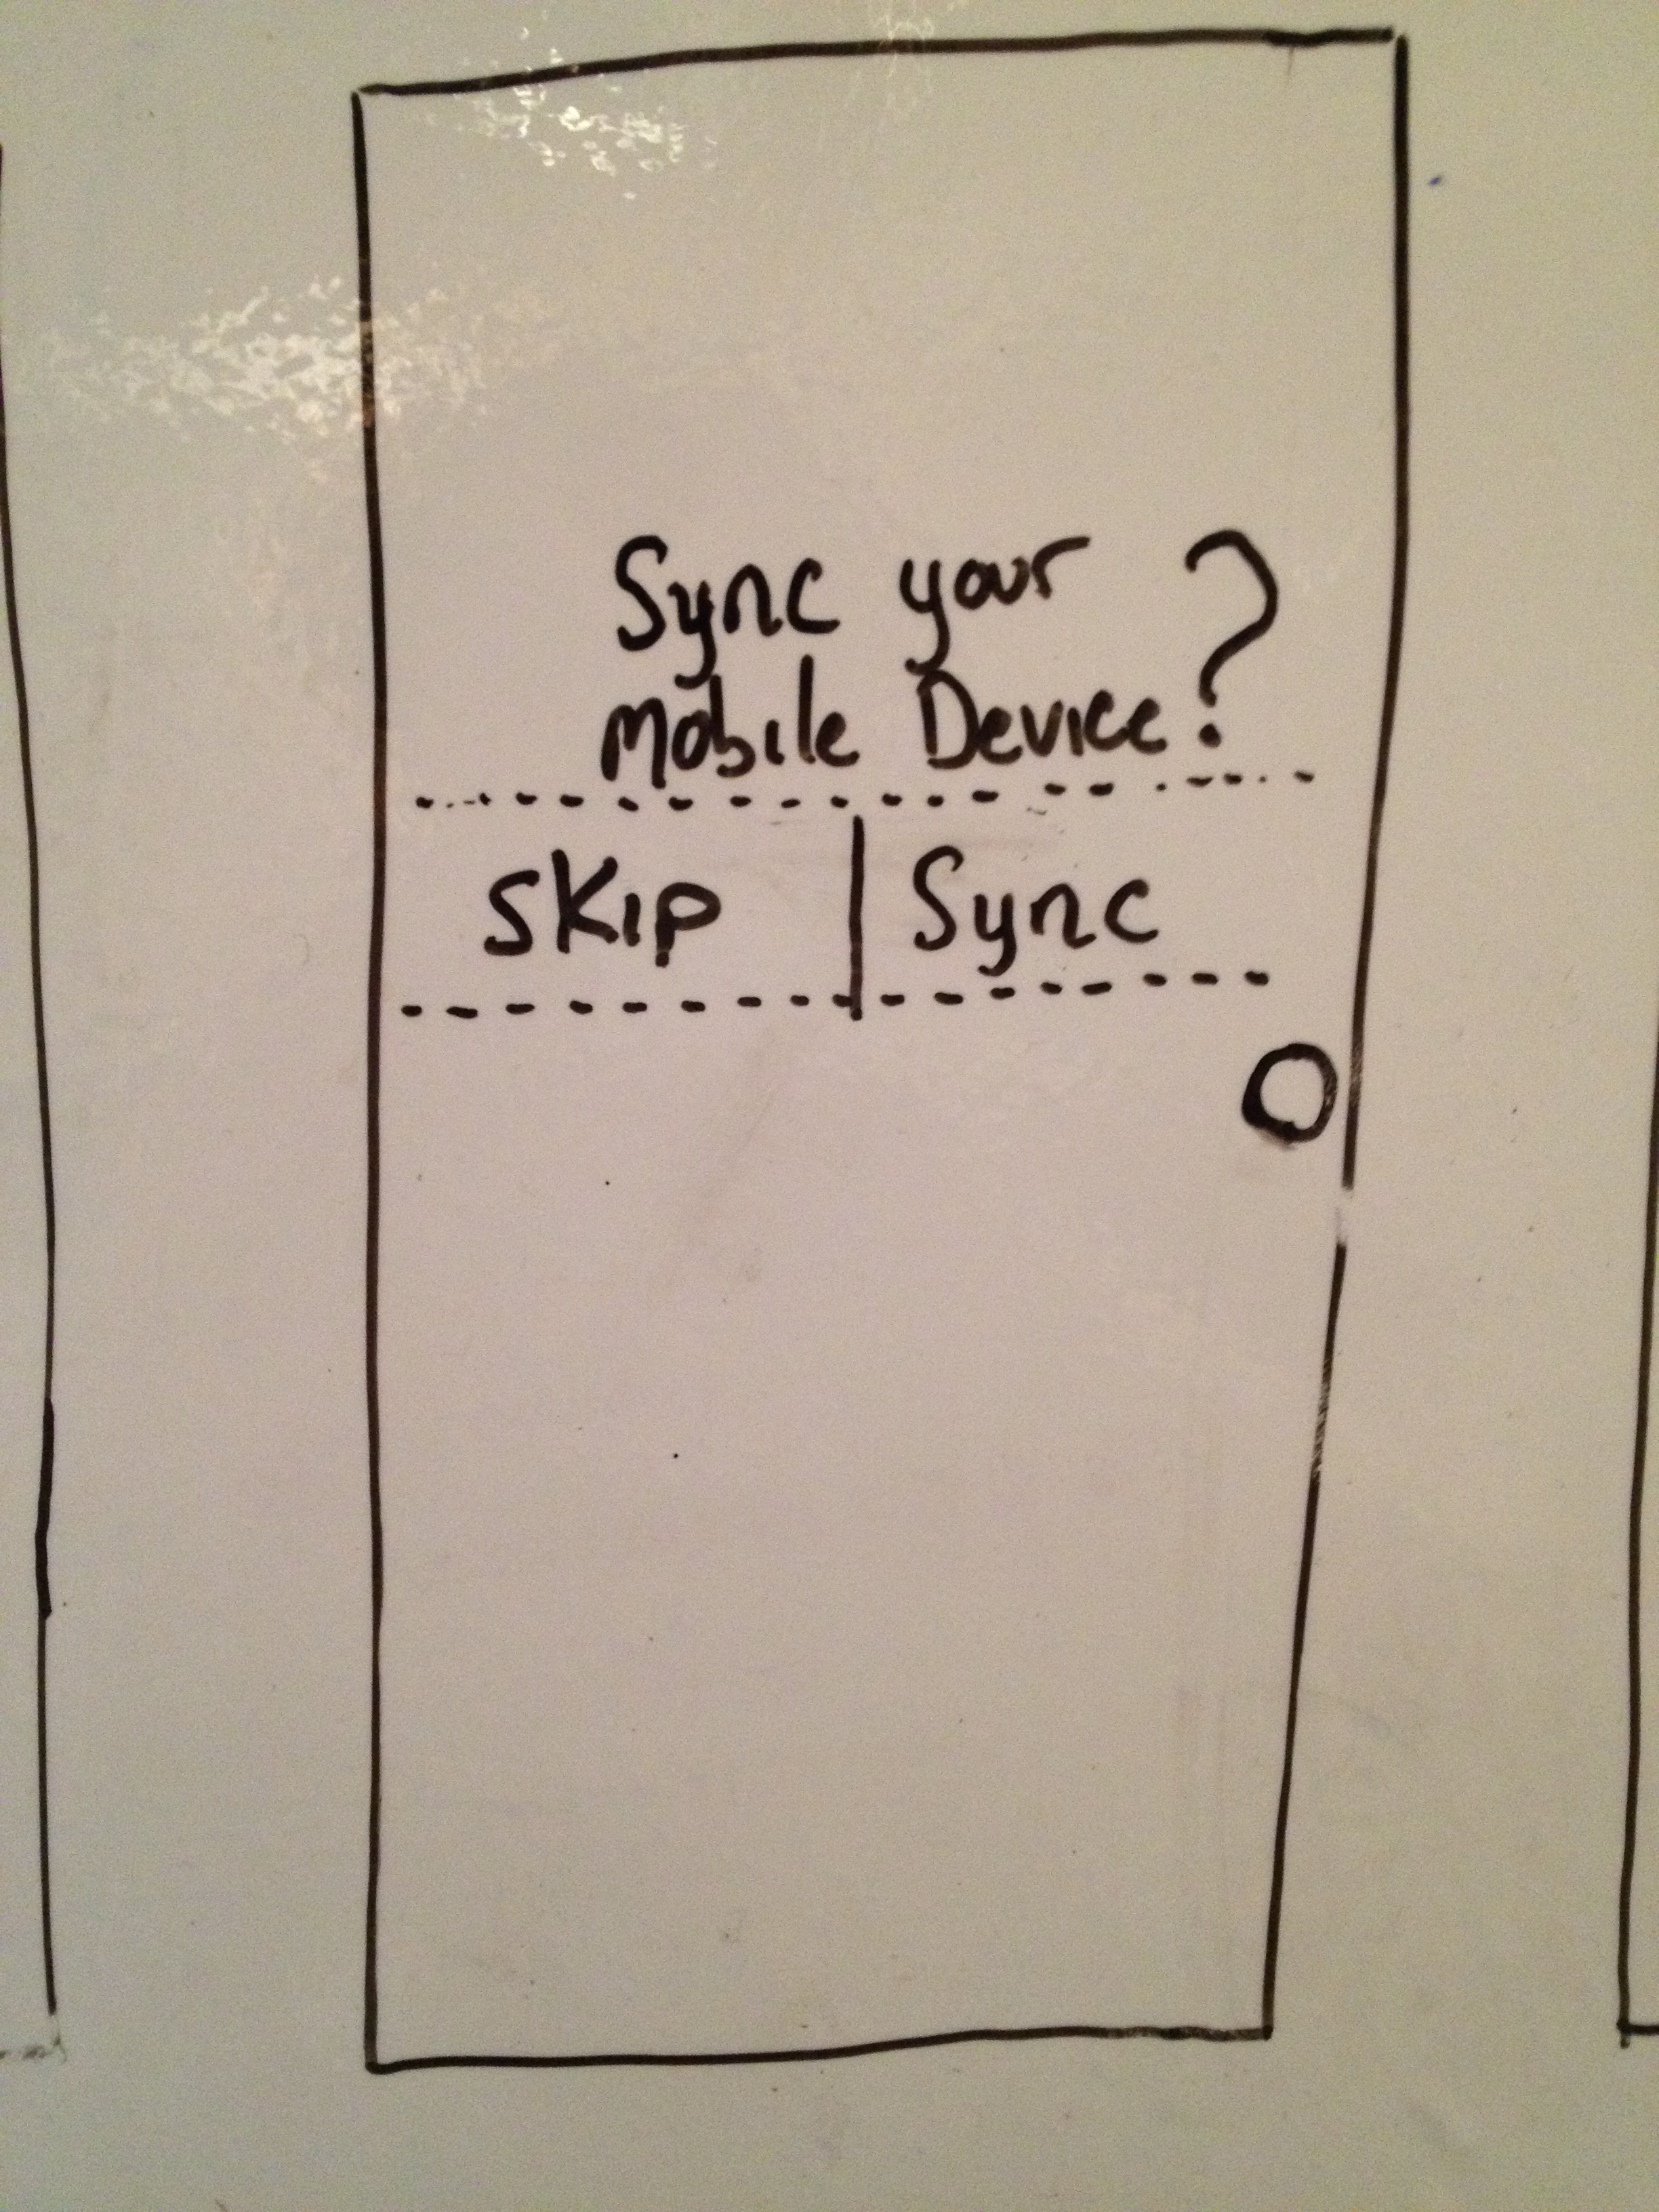 Sync your
Mobile Device?
SKIP | Sync